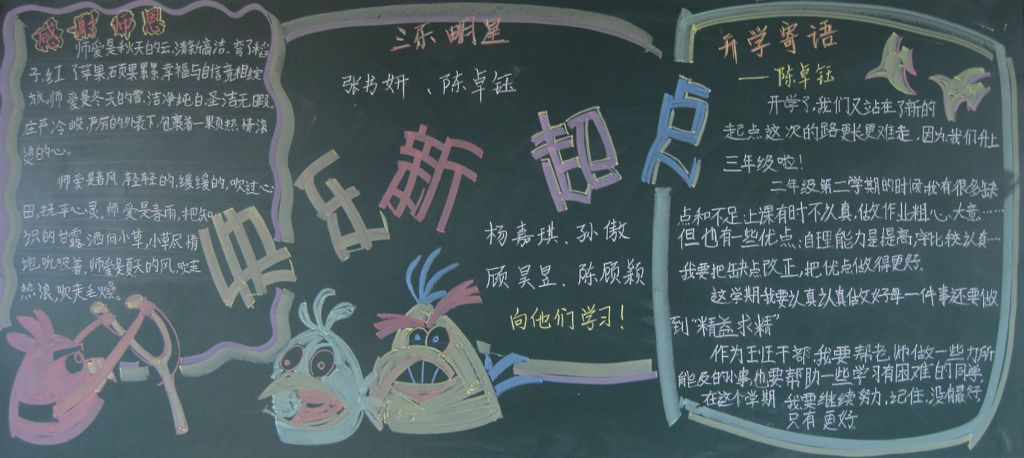 感谢师恩
师爱是秋天的云,清新高洁,弯了稻
子,红了苹果,硕果累累,幸福与自信竞相绽
放。师爱是冬天的雪,洁净纯白,圣洁无暇,
庄严冷峻,严厉的外表下,包裹着一颗热情滚
烫的心。
师爱是春风,轻轻的,缓缓的,吹过心
田,抚平心灵,师爱是春雨,把知
识的甘露,洒向小草,小草尽情
地吮吸着,师爱是夏天的风,吹走
热浪,吹走毛燥。
三乐明星
张书妍、陈卓钰
快乐新起点
杨嘉琪、孙傲
顾昊昱、陈顾颖
向他们学习!
开学寄语
——陈卓钰
开学了,我们又站在了新的
起点,这次的路更长更难走,因为我们升上
三年级啦!
二年级第二学期的时候,我有很多缺
点和不足:上课有时不认真,做作业粗心、大意……
但也有一些优点:自理能力是提高,字比较认真……
我要把缺点改正,把优点做得更好。
这学期我要认真认真做好每一件事,还要做
到“精益求精”
作为班干部,我要帮老师做一些力所
能及的小事,也要帮助一些学习有困难的同学。
在这个学期,我要继续努力,记住,没有最好,
只有更好